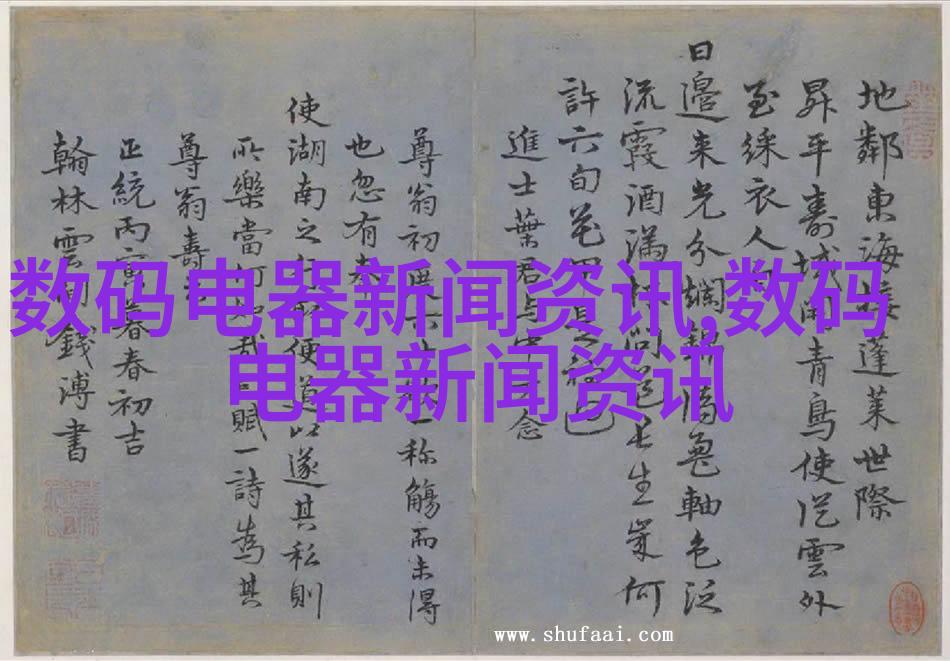 地鄰東海蓬萊世際
昇平壽域開青鳥使從雲外
至綵衣人
日邊來光分斕龜軸色泛
流霞酒滿杯問長生何
許六旬花甲
進士葉君与中念
尊翁初一称觴而未得
也忽有奉
使湖南之行便道以遂其私則
所樂當何哉賦一詩為其
尊翁壽
正統丙寅春春初吉
翰林雲間錢溥書
数码电器新闻资讯,数码
电器新闻资讯
www.shufaai.com